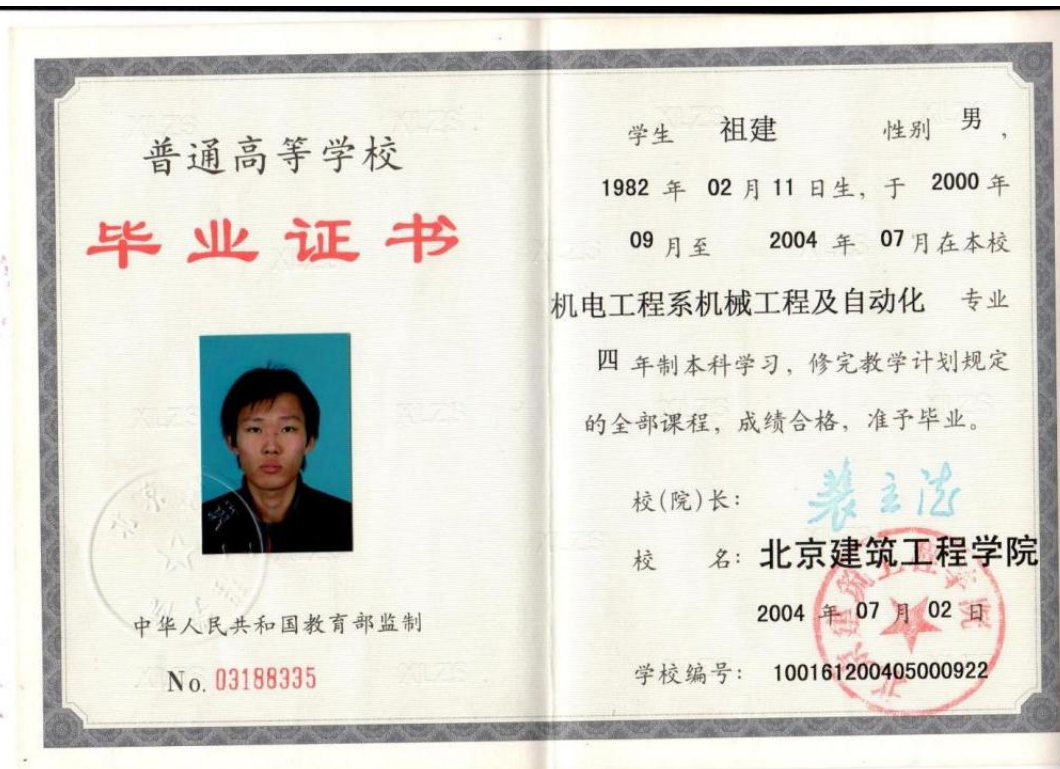 普通高等学校
毕业证书
中华人民共和国教育部监制
No. 03188335
学生 祖建 性别 男,
1982 年 02 月 11 日生, 于 2000 年
09 月至 2004 年 07 月在本校
机电工程系机械工程及自动化 专业
四 年制本科学习, 修完教学计划规定
的全部课程, 成绩合格, 准予毕业。
校(院)长:
校 名: 北京建筑工程学院
2004 年 07 月 02 日
学校编号: 100161200405000922
北京建筑工程学院